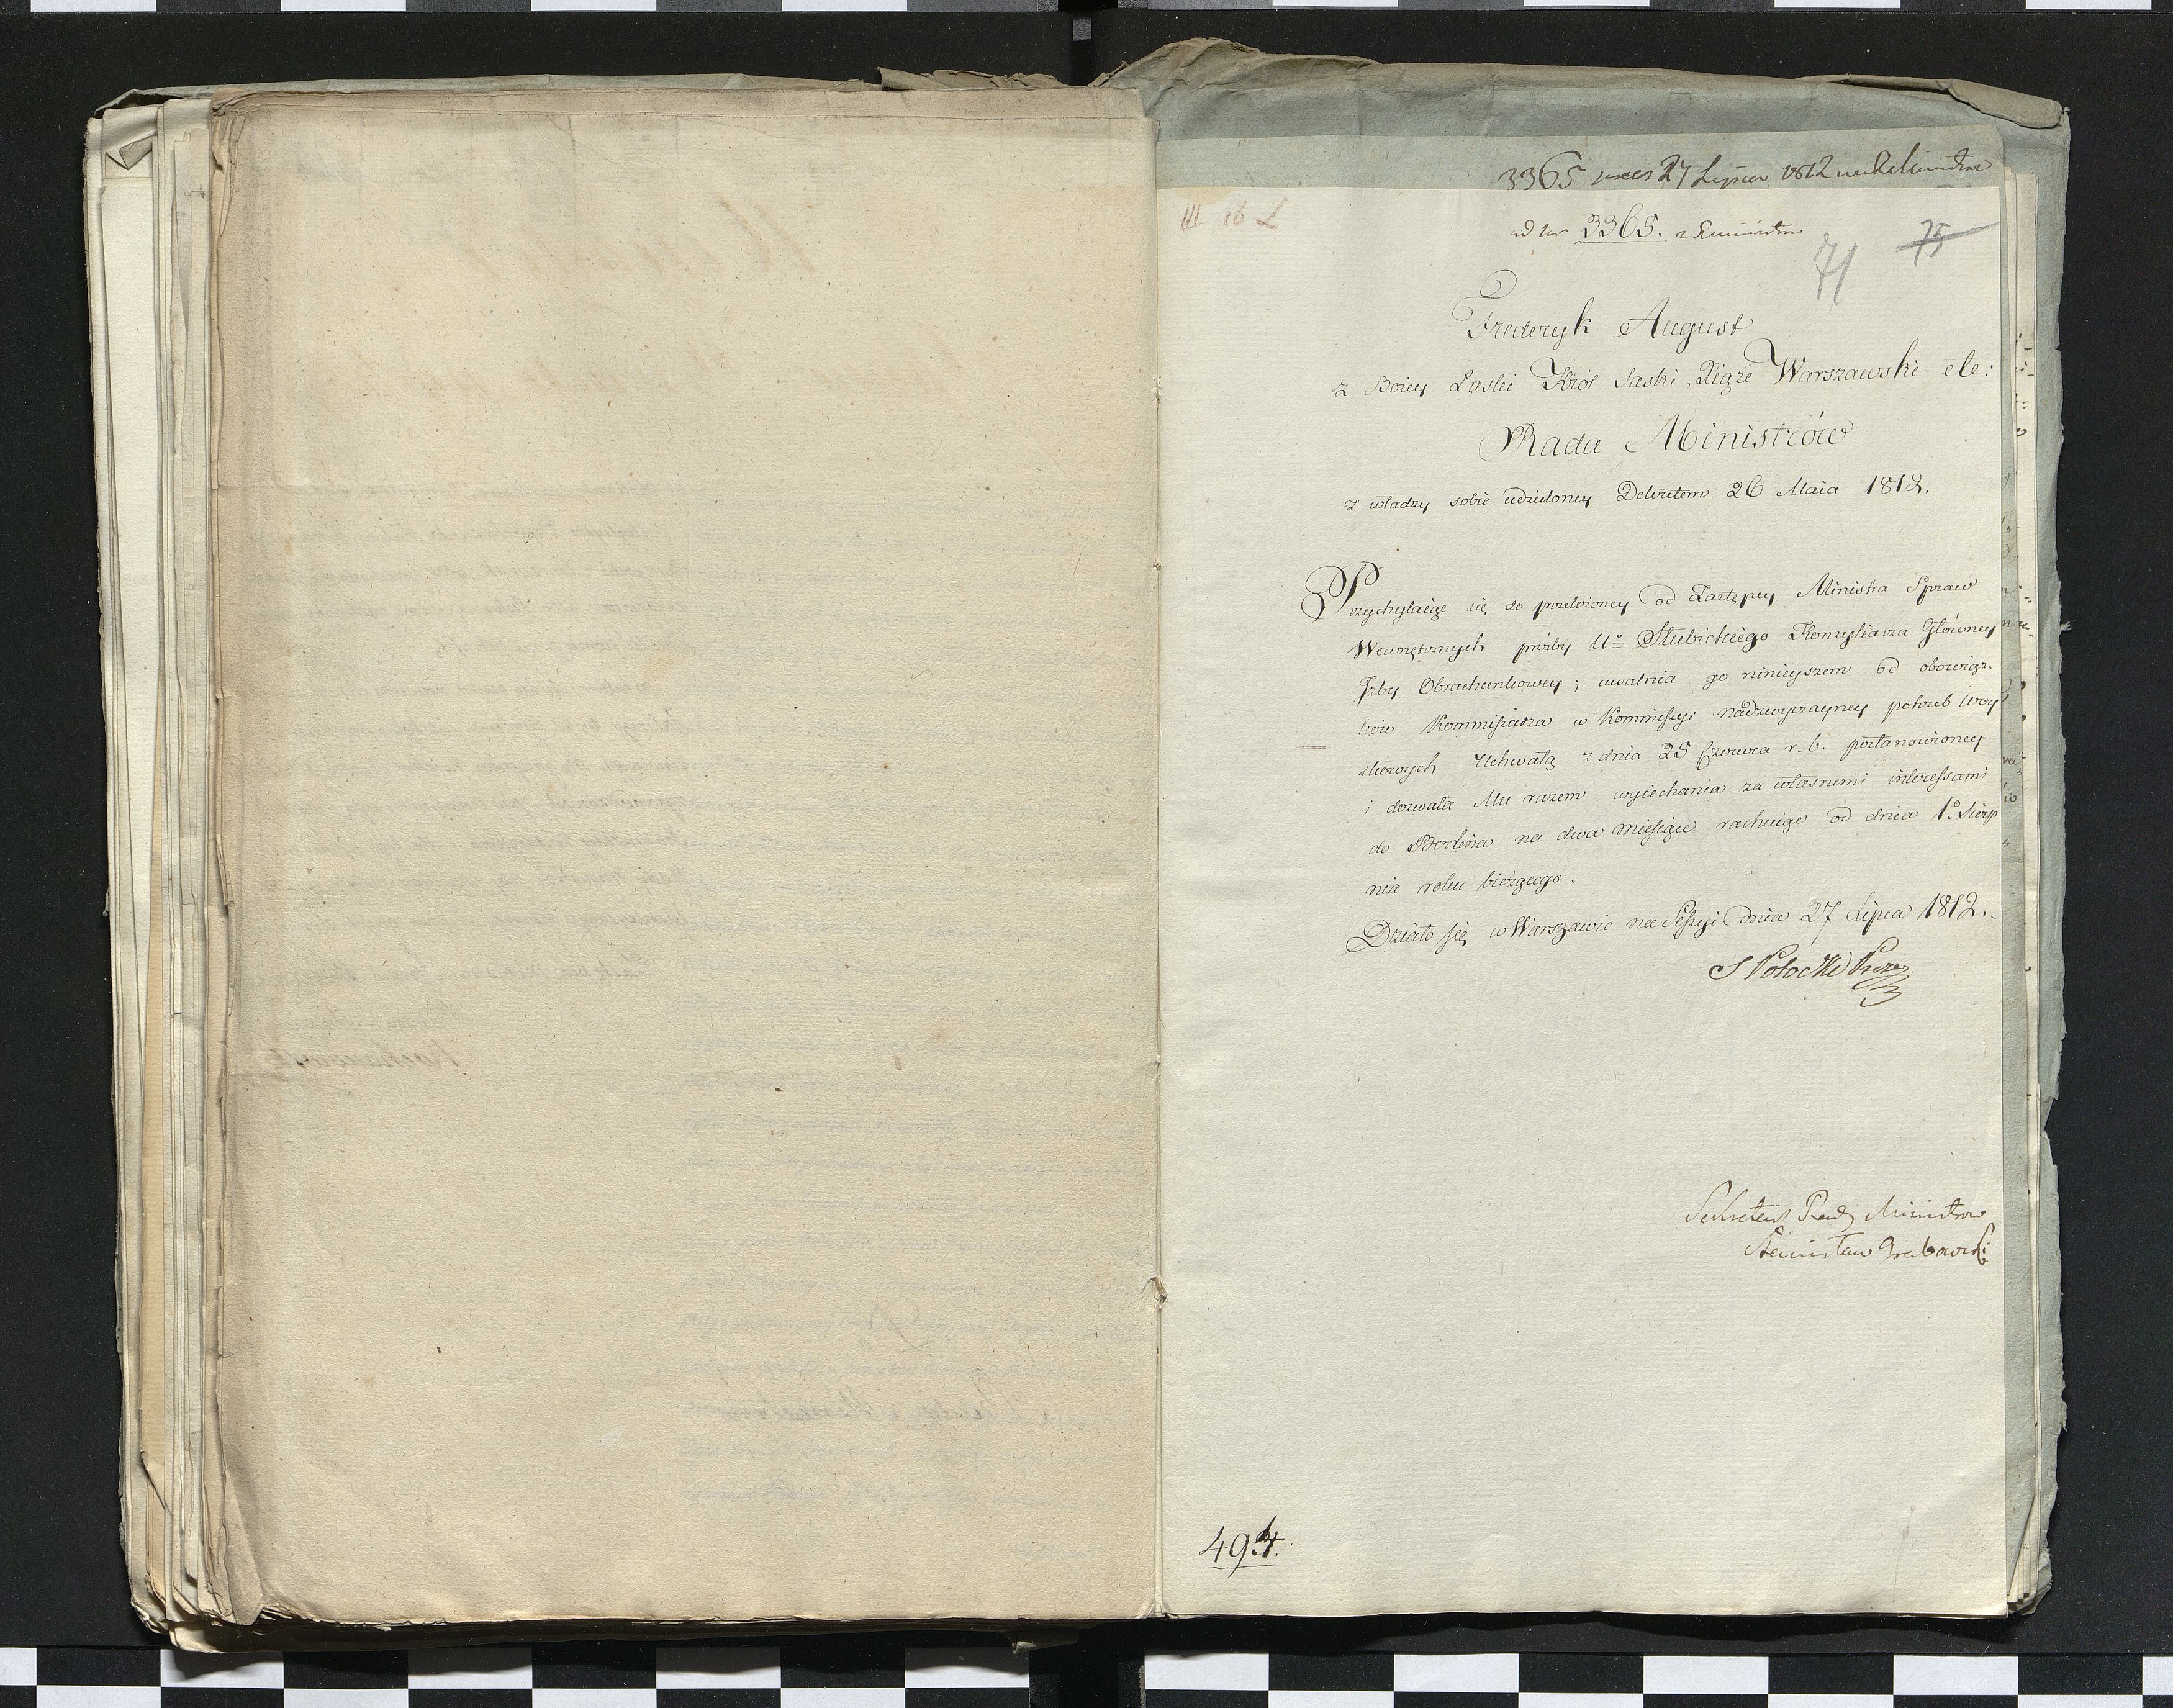 3365 27 Lipca 1812
III 16 L
ad Nr 3365.
71 75
Frederyk August
z Bożey Łaski Król Saski, Xiąże Warszawski etc:
Rada Ministrów
z władzy sobie udzieloney Dekretem 26 Maia 1812.
Przychylaiąc się do przełożoney od Zastępcy Ministra Spraw
Wewnętrznych prośby Ur Słubickiego Konsyliarza Główney
Izby Obrachunkowey; uwalnia go ninieyszem od obowiąz-
ków Kommissarza w Kommissyi nadzwyczayney potrzeb woy
skowych Uchwałą z dnia 25 Czerwca r. b. postanowioney
i dozwala Mu razem wyiechania za własnemi interessami
do Berlina na dwa miesiące rachuiąc od dnia 1o Sierp
nia roku bieżącego.
Działo się w Warszawie na Sessyi dnia 27 Lipca 1812.
S Potocki Prezes
Sekretarz Rady Ministrow
Stanisław Grabowski
494.